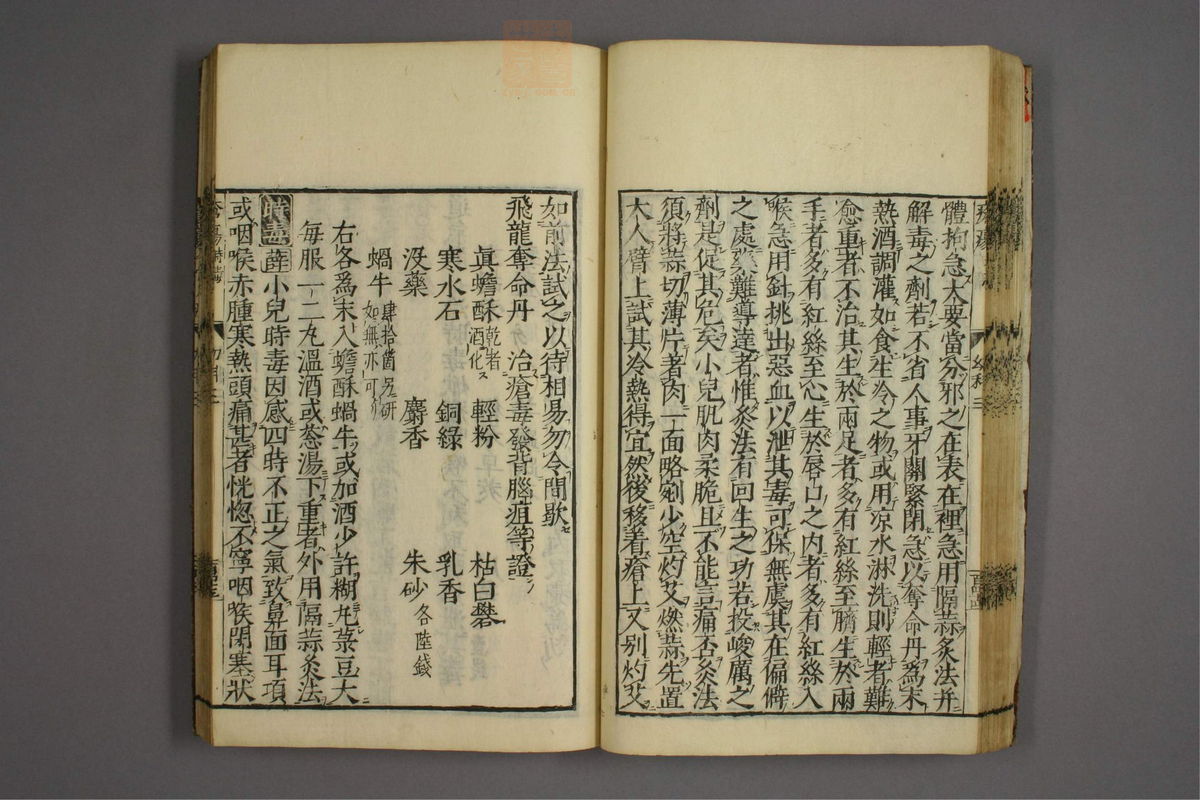 體拘急大要當分邪之在表在裡急用隔蒜炙法并
解毒之劑若不省人事牙關緊閉急以奪命丹爲末
熱酒調灌如食生冷之物或用凉水淋洗則輕者難
愈重者不治其生於兩足者多有紅絲至臍生於兩
手者多有紅絲至心生於唇口之内者多有紅絲入
喉急用針挑出惡血以泄其毒可保無虞其在偏僻
之處藥難導達者惟灸法有回生之功若投峻厲之
劑是促其危矣小兒肌肉柔脆且不能言痛否灸法
須將蒜切薄片者肉一面略剜少空灼艾燃蒜先置
大人臂上試其冷熱得宜然後移着瘡上又别灼艾
如前法試之以待相易勿令間歇
飛龍奪命丹 治瘡毒發背腦疽等證
眞蟾酥乾者酒化 輕粉 枯白礬
寒水石 銅綠 乳香
没藥 麝香 朱砂各陸錢
蝸牛肆拾箇另研如無亦可
右各爲末入蟾酥蝸牛或加酒少許糊丸菉豆大
每服一二丸溫酒或葱湯下重者外用隔蒜灸法
時毒 薛 小兒時毒因感四時不正之氣致鼻面耳項
或咽喉赤腫寒熱頭痛甚者恍惚不寧咽喉閉塞狀